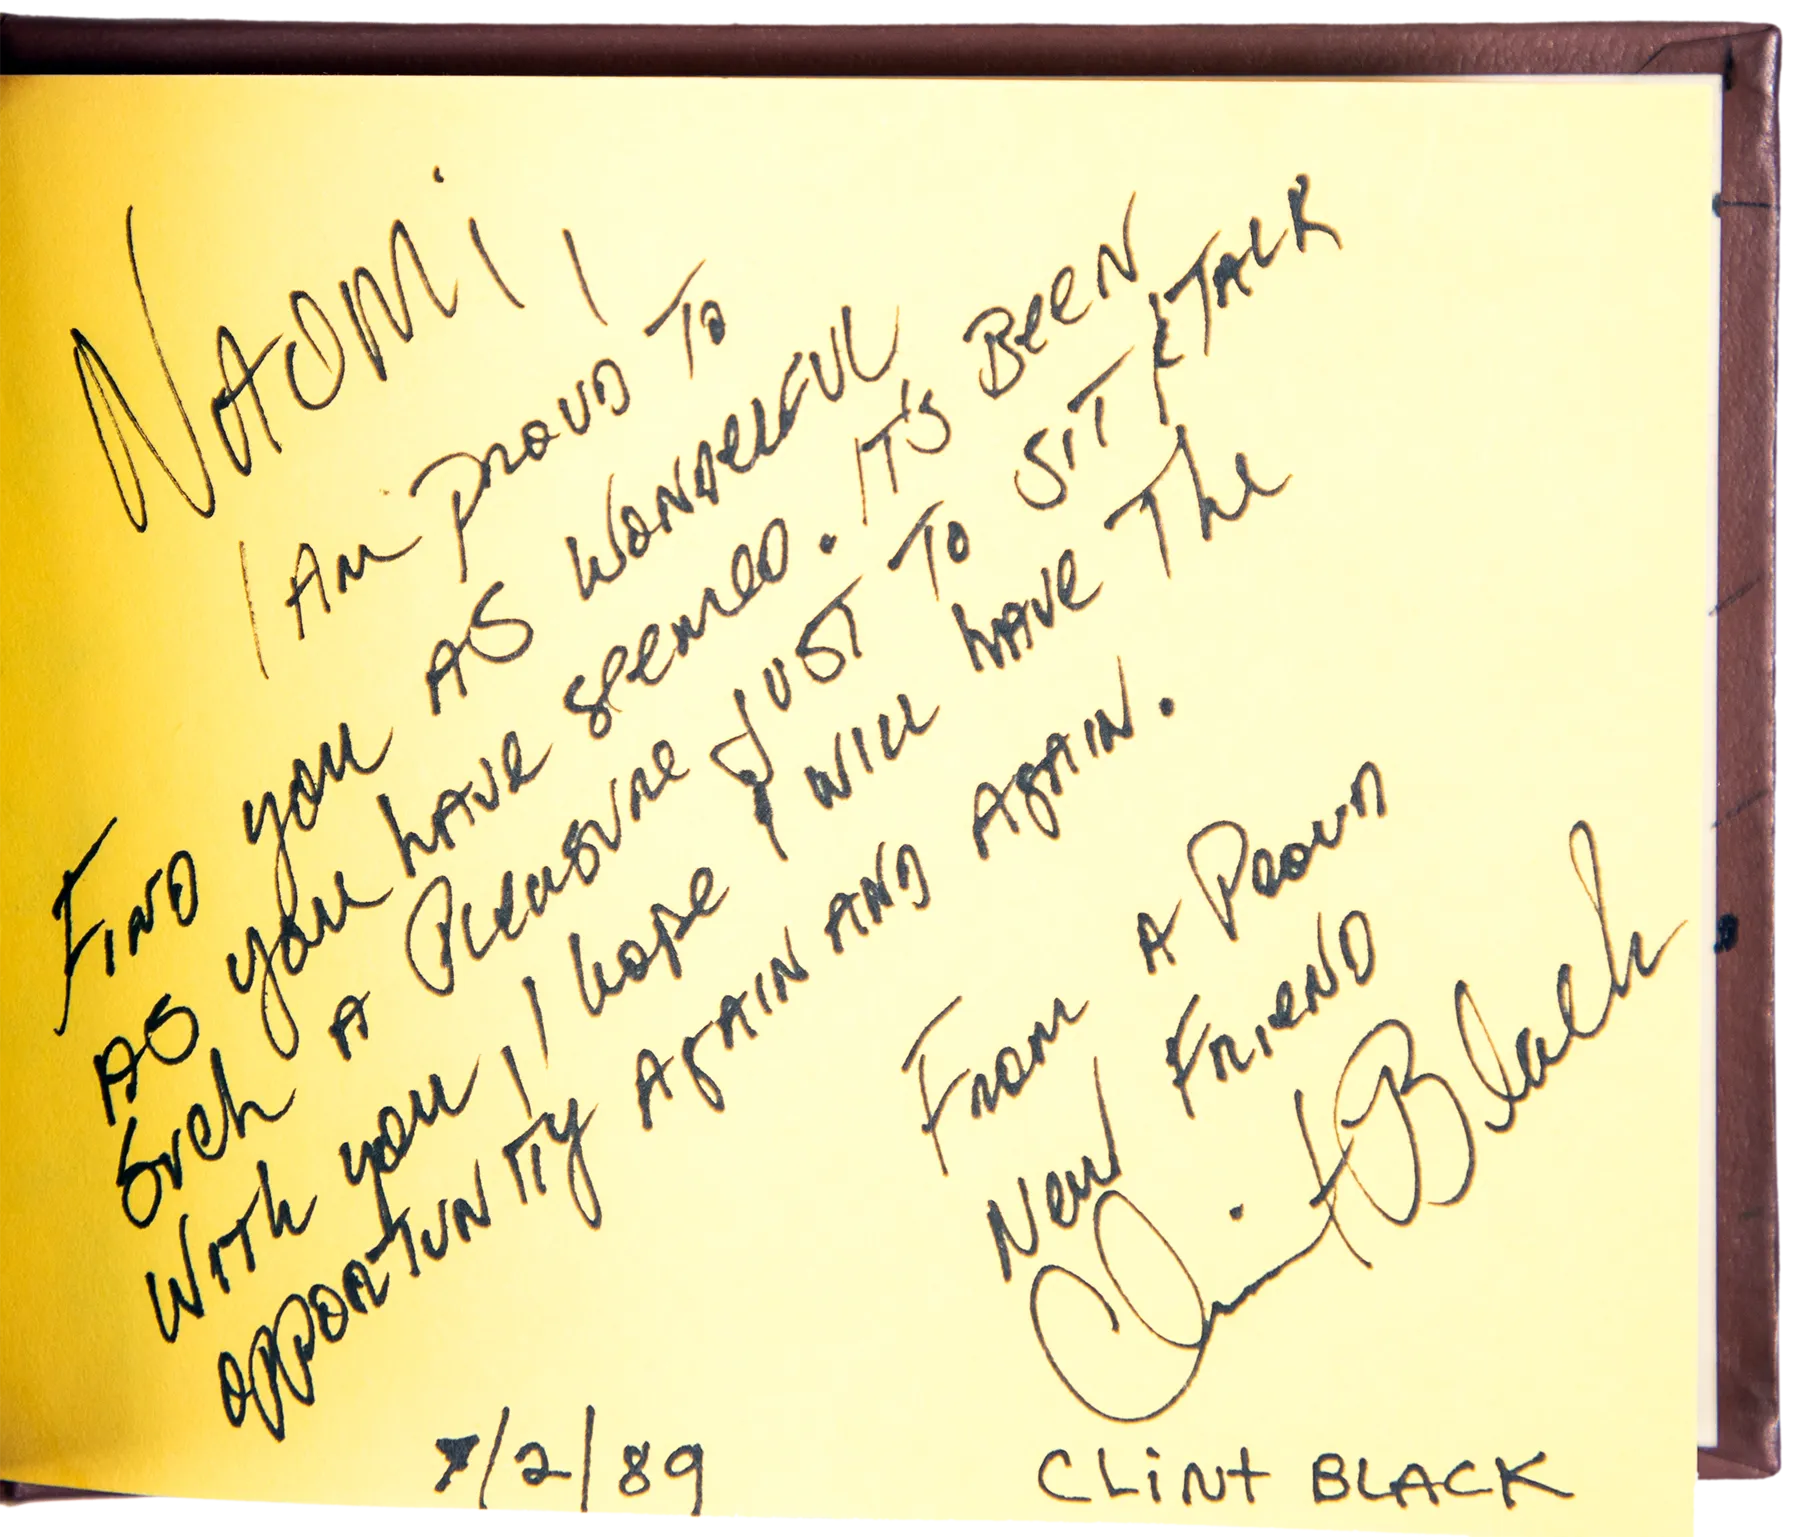 NAOMI,
I AM PROUD TO
FIND YOU AS WONDERFUL
AS YOU HAVE SEEMED. IT'S BEEN
SUCH A PLEASURE JUST TO SIT & TALK
WITH YOU, I HOPE I WILL HAVE THE
OPPORTUNITY AGAIN AND AGAIN.
FROM A PROUD
NEW FRIEND
Clint Black
7/2/89
CLiNt BLACK